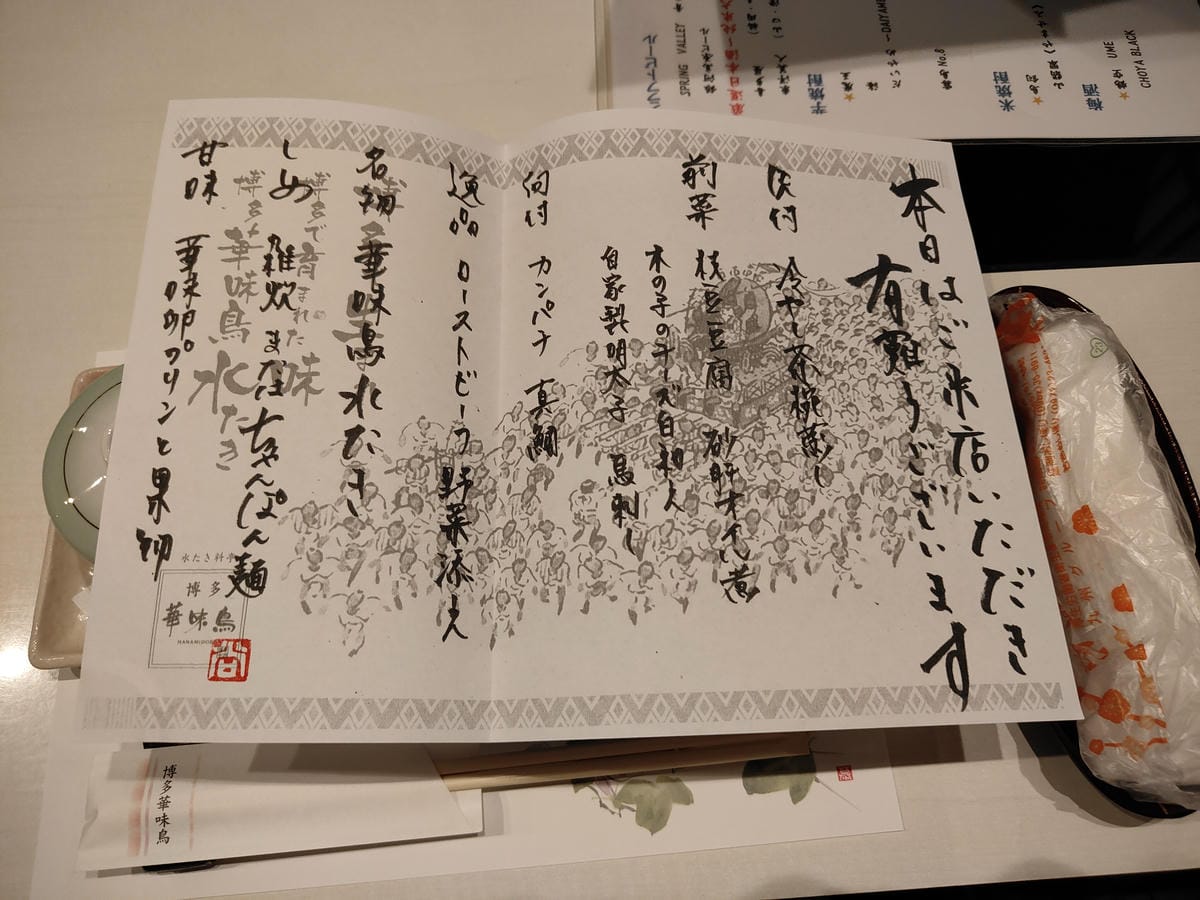 本日はご来店いただき
有難うございます
先付 冷やし茶椀蒸し
前菜 枝豆豆腐 砂肝オイル煮
木の子のチーズ白和え
自家製明太子 鳥刺し
向付 カンパチ 真鯛
逸品 ローストビーフ野菜添え
名物 華味鳥水たき
しめ 雑炊またはちゃんぽん麺
甘味 華味卵プリンと果物
博多で育まれた味
博多華味鳥 水たき
水たき料亭
博多
華味鳥
HANAMIDORI
博多華味鳥
クラフトビール
SPRING VALLEY
芋焼酎
米焼酎
梅酒
UME
CHOYA BLACK